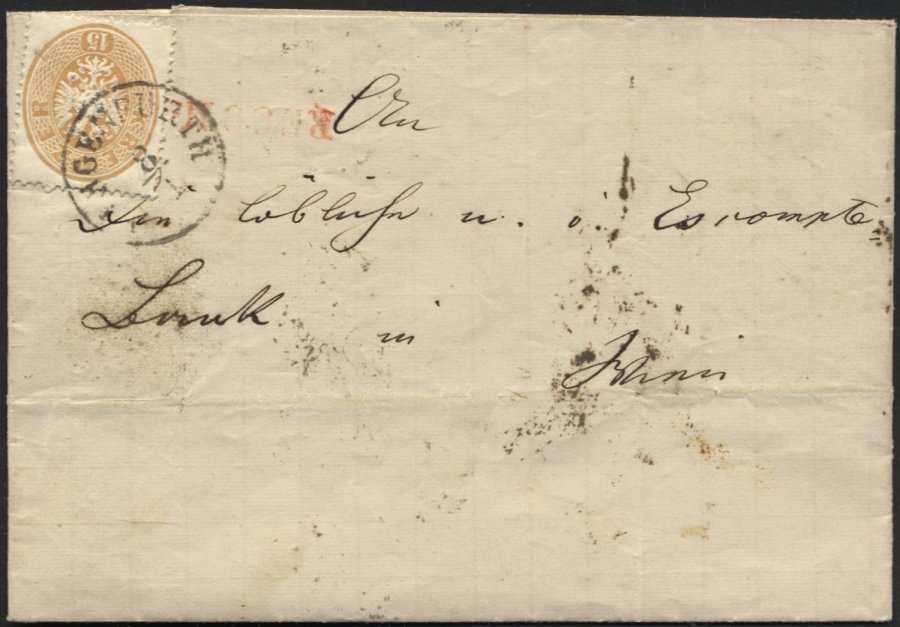 15
AGENFURTH
An
Die löbliche n. ö. Escompte
Bank in
Wien